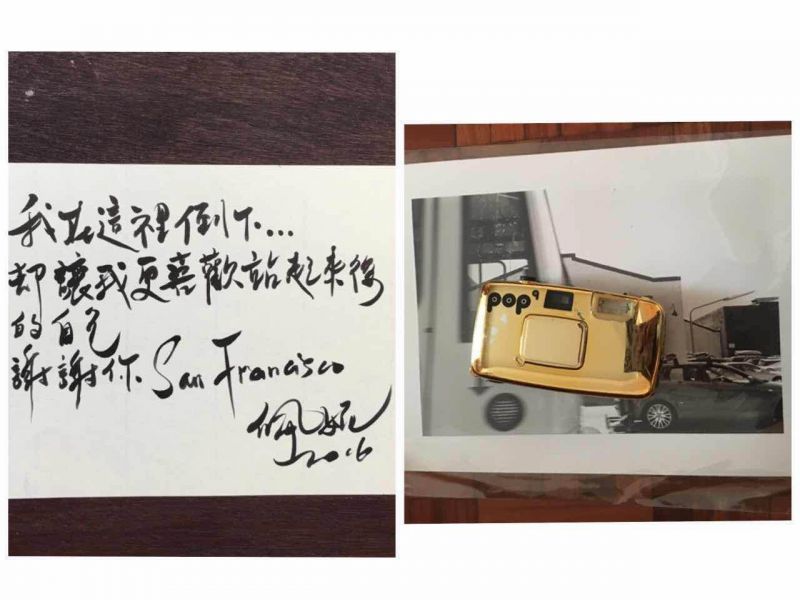 我在這裡倒下...
却讓我更喜歡站起來後
的自己
謝謝你 San Francisco
佩妮
2016
pop⁹